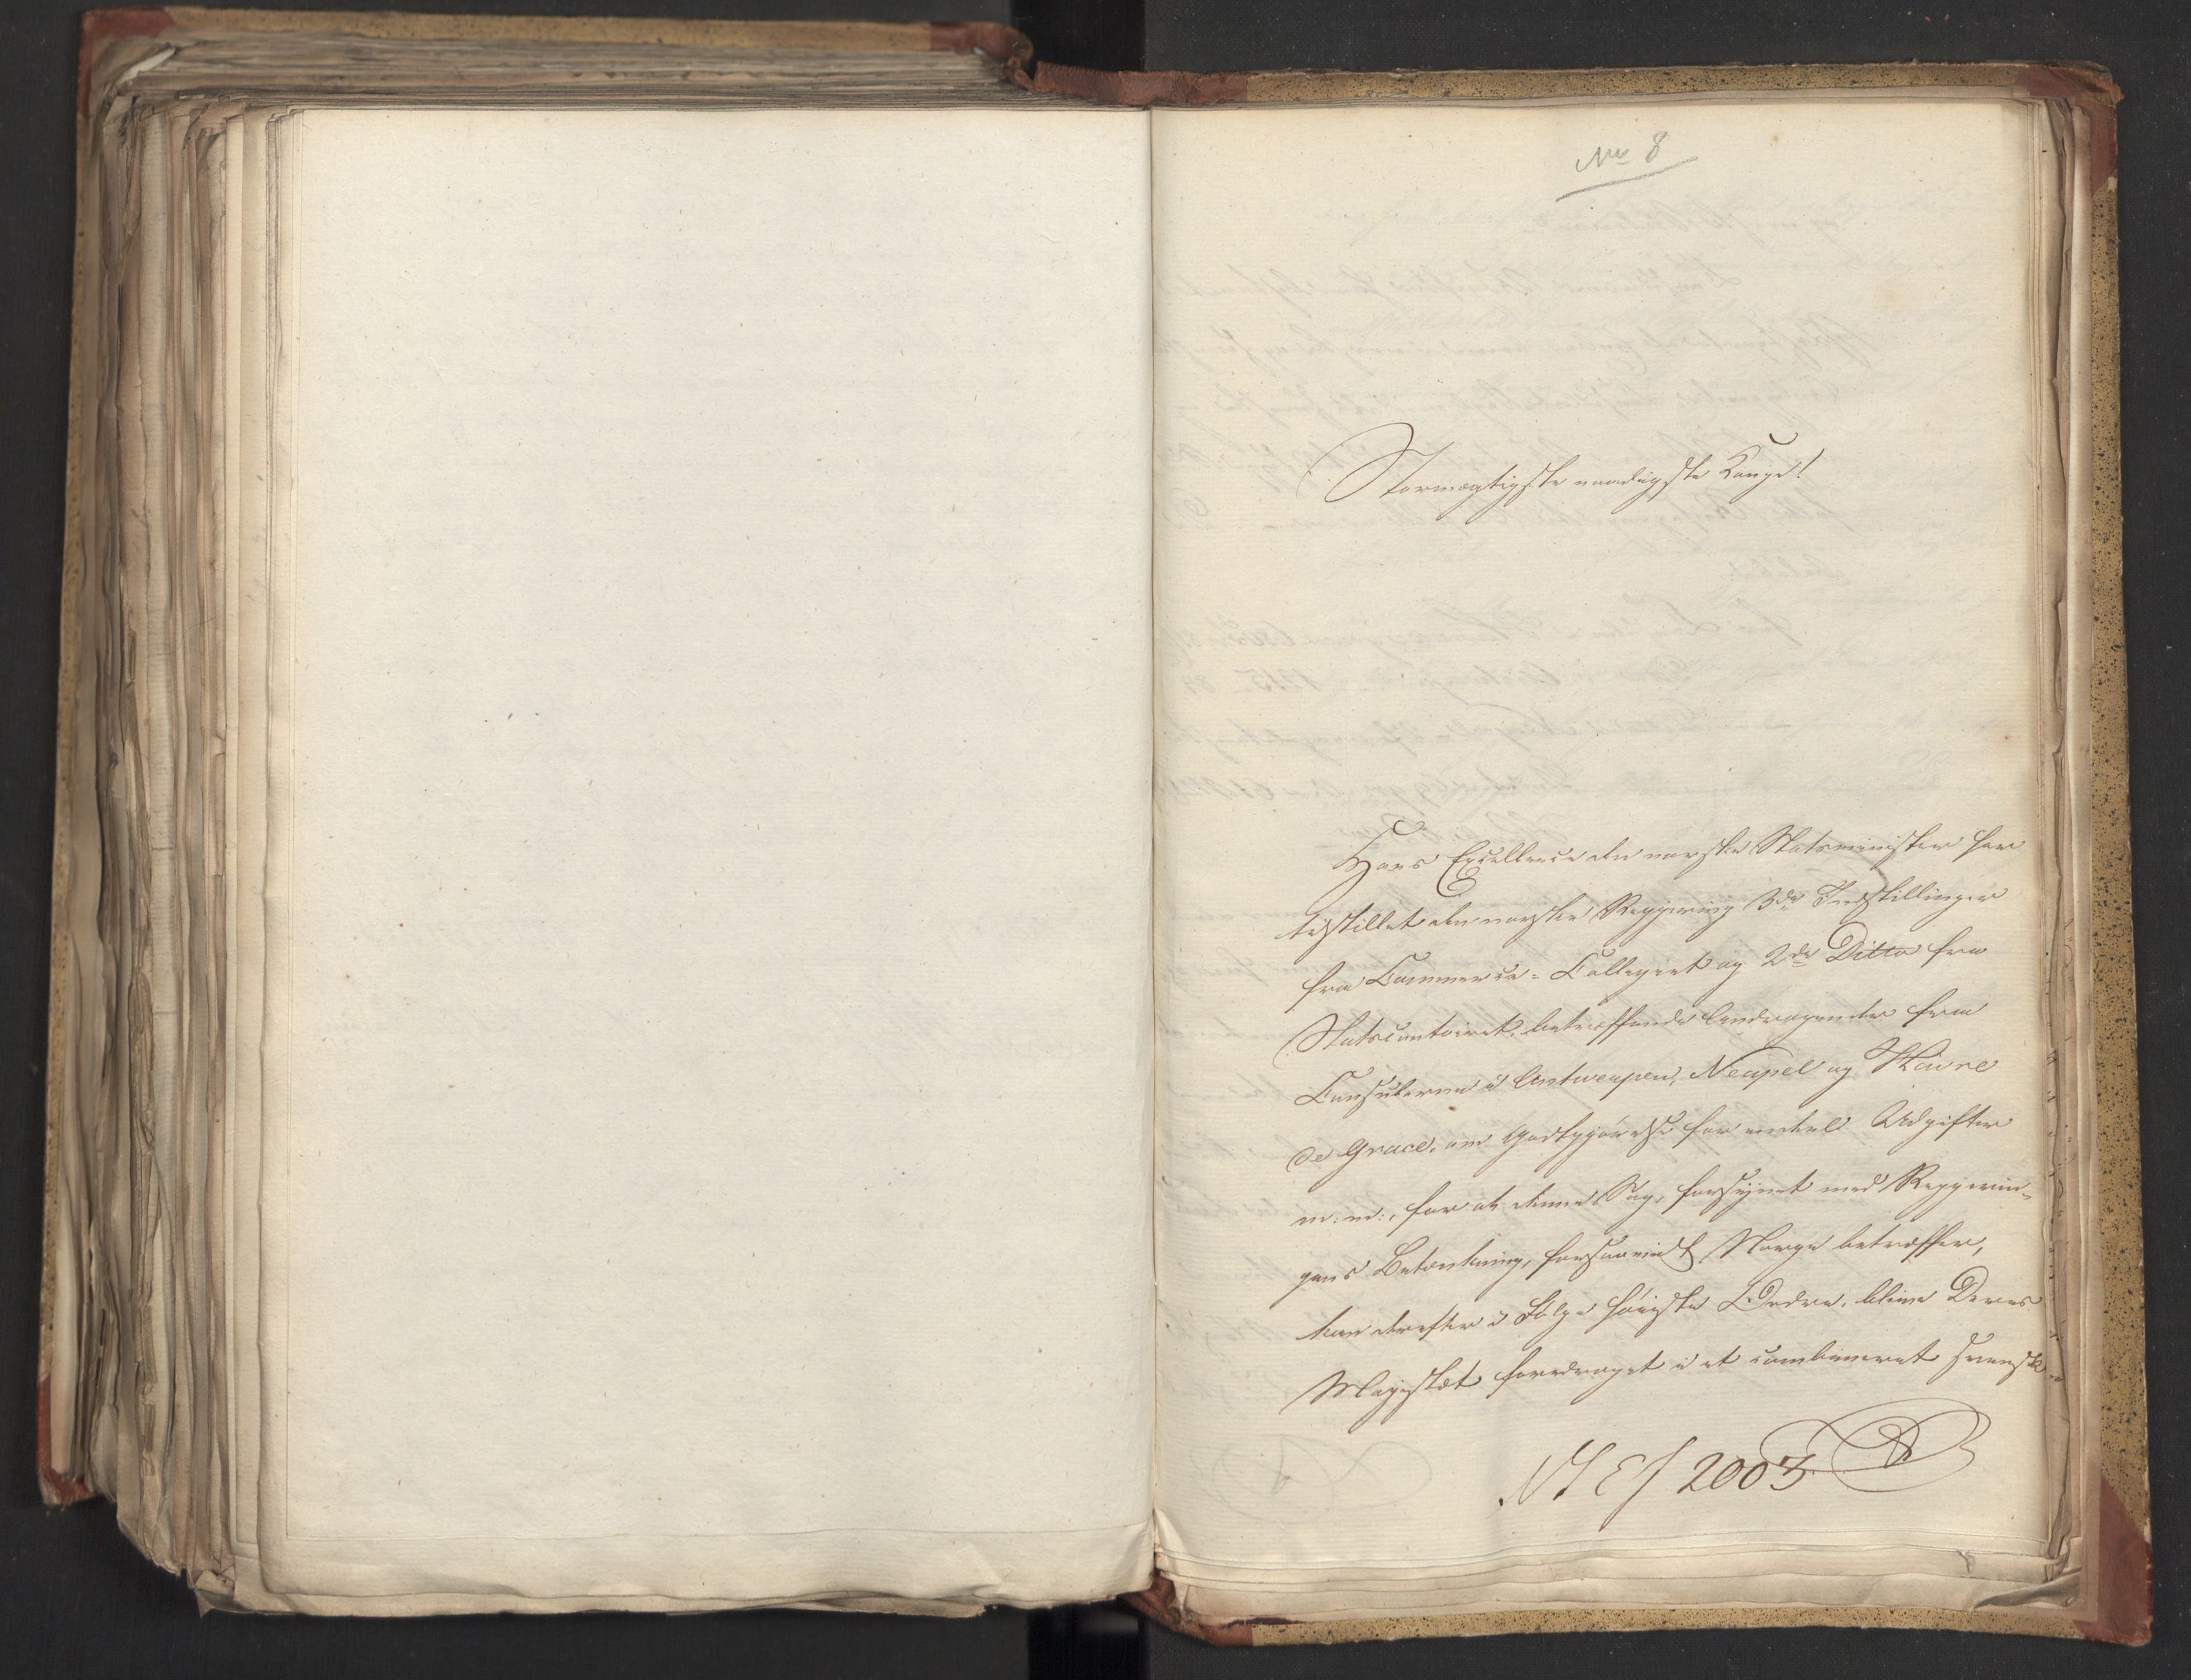 No 8
Stormægtigste naadigste Konge!
Hans Excellence den norske Statsminister har
tilstillet den norske Regjering 3de Indstillinger
fra Commerce-Collegiet og 2de Ditto fra
Statscontoiret, betræffende Andragender fra
Consulerne i Antwerpen, Neapel og Havre
de Grace, om Godtgjørelse for endeel Udgifter
m: m:, for at denne Sag, forsynet med Regjerin-
gens Betænkning, forsaavidt Norge betræffer,
kan derefter i Følge høieste Ordre, blive Deres
Majestæt foredraget i et combineret svensk
2003